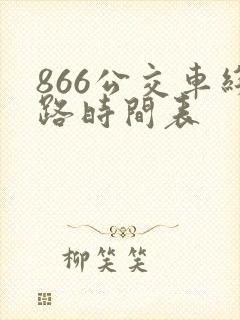 866公交車線
路時間表
柳笑笑